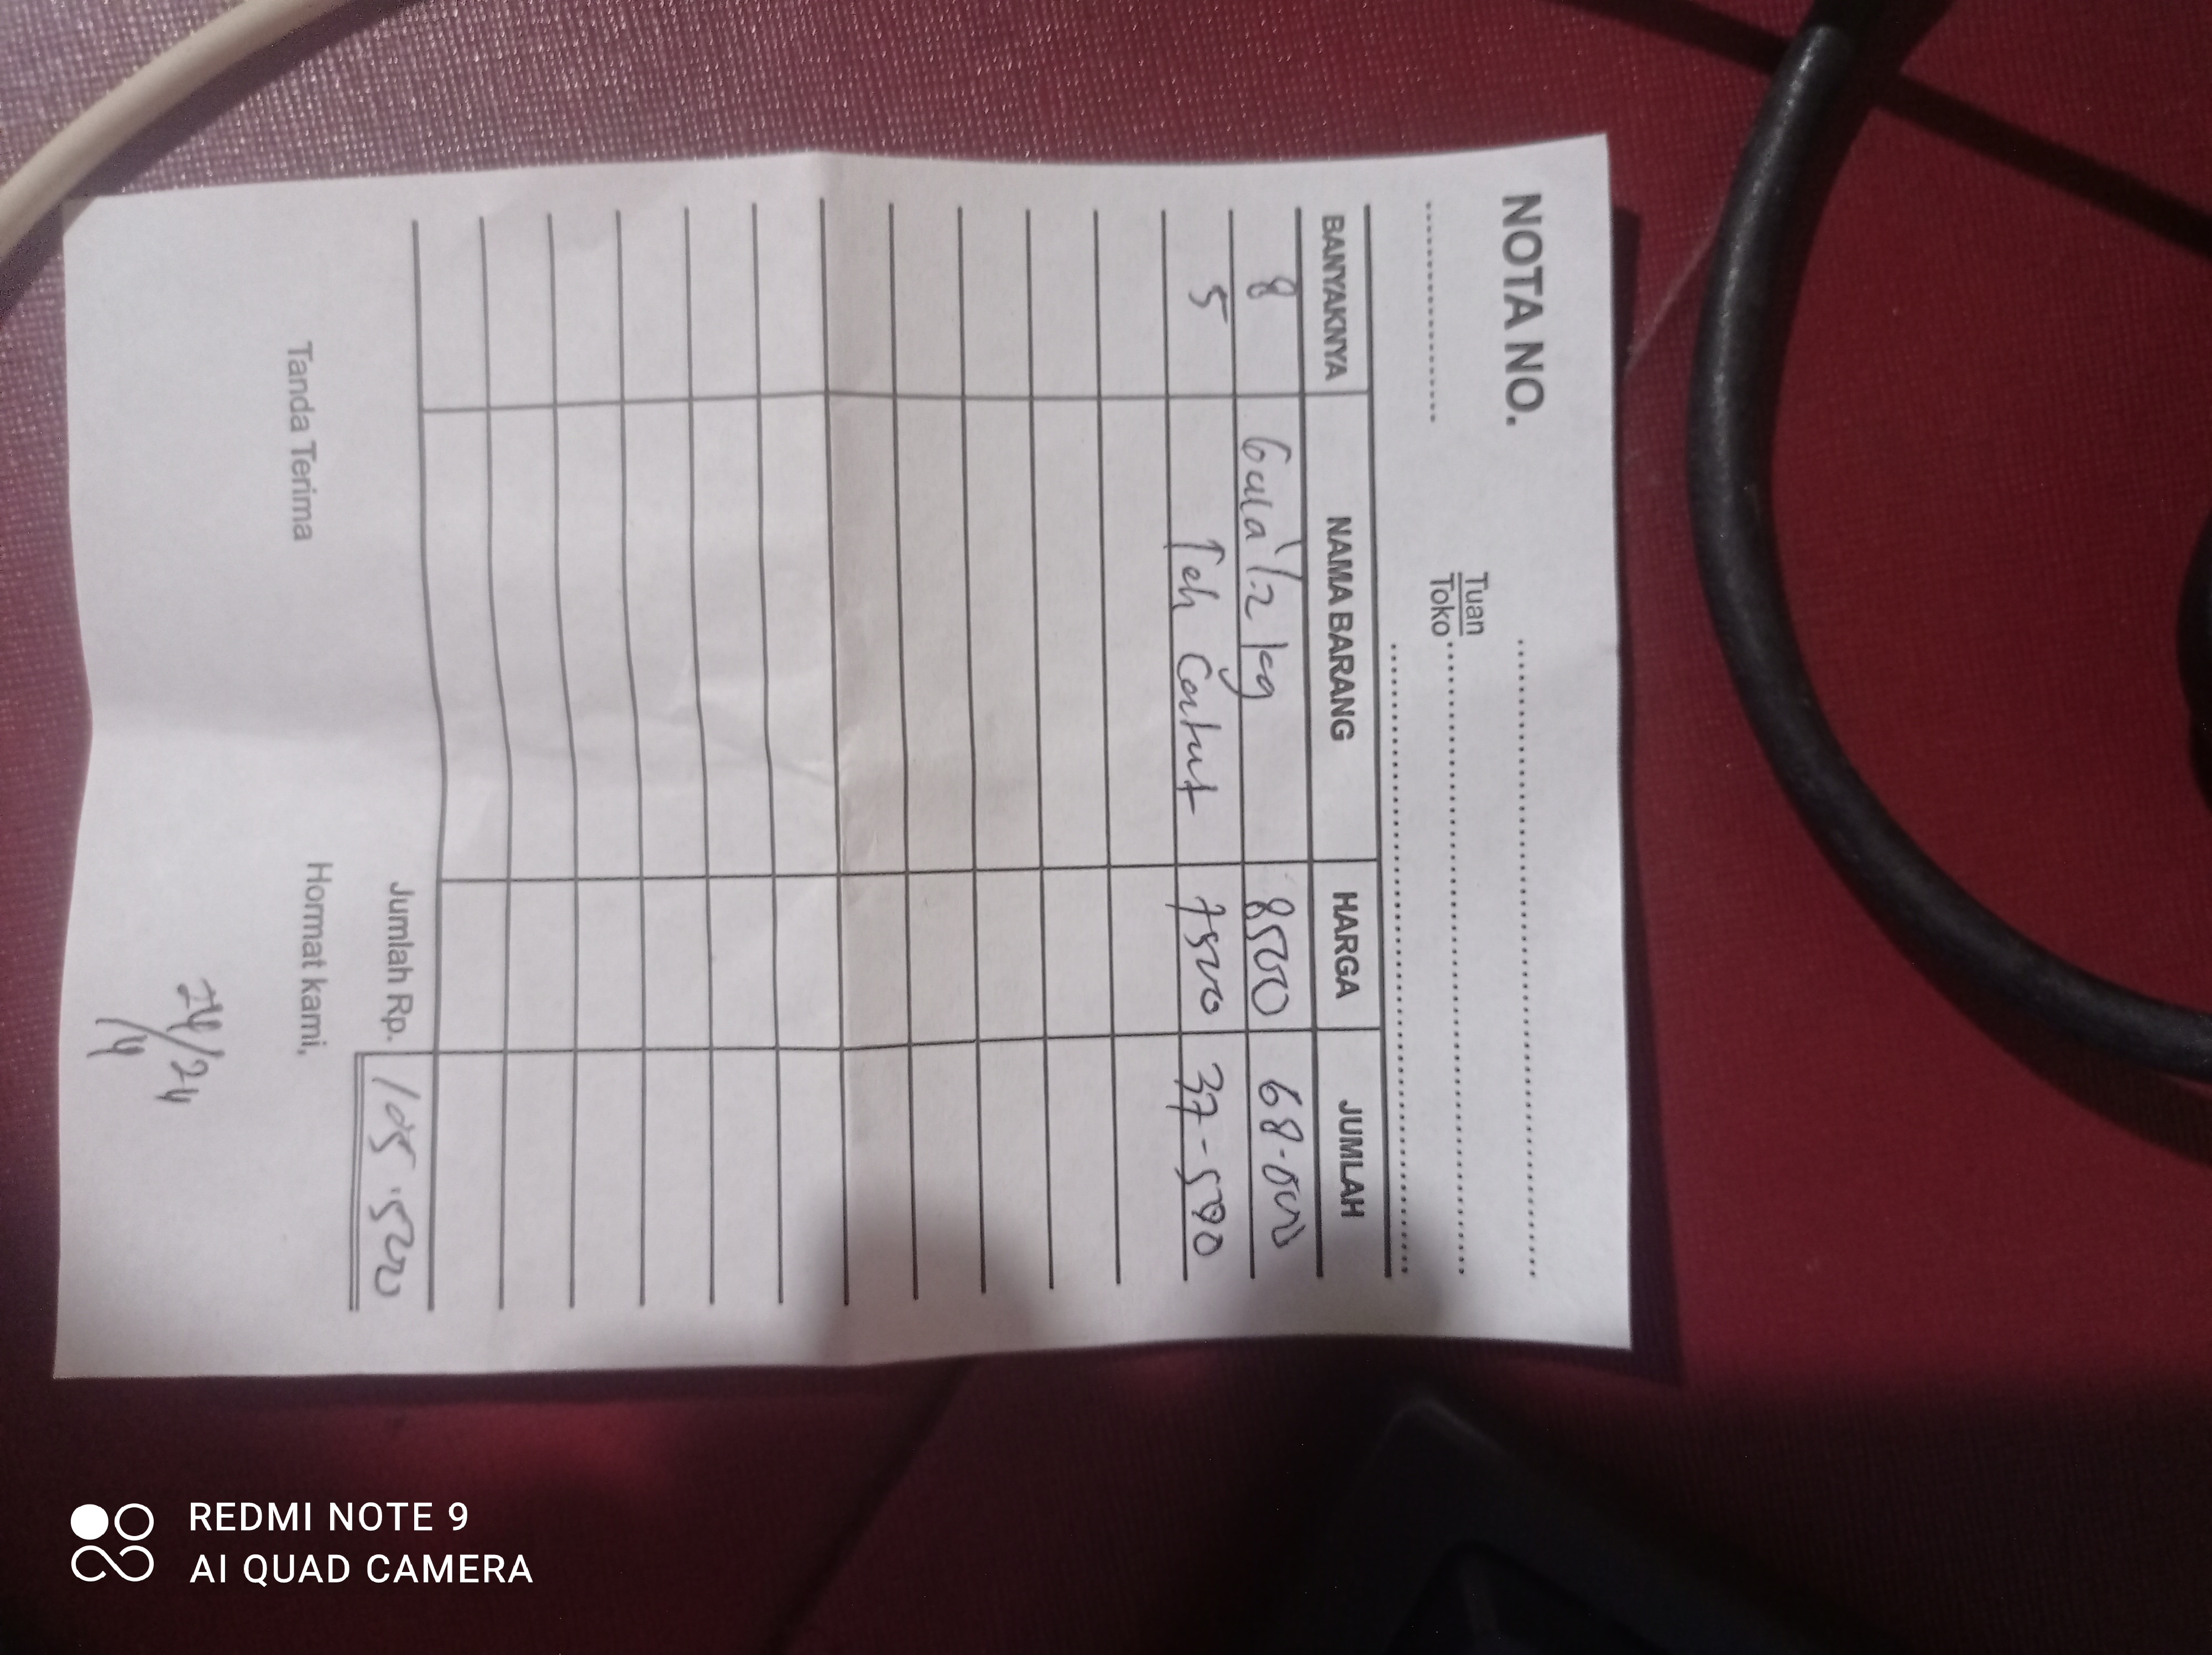 NOTA NO.
Tuan
Toko
BANYAKNYA NAMA BARANG HARGA JUMLAH
8 Gula 1/2 kg 8500 68.000
5 Teh Catut 7500 37-500
Jumlah Rp. 105.500
Tanda Terima Hormat kami,
24/24
/4
REDMI NOTE 9
AI QUAD CAMERA